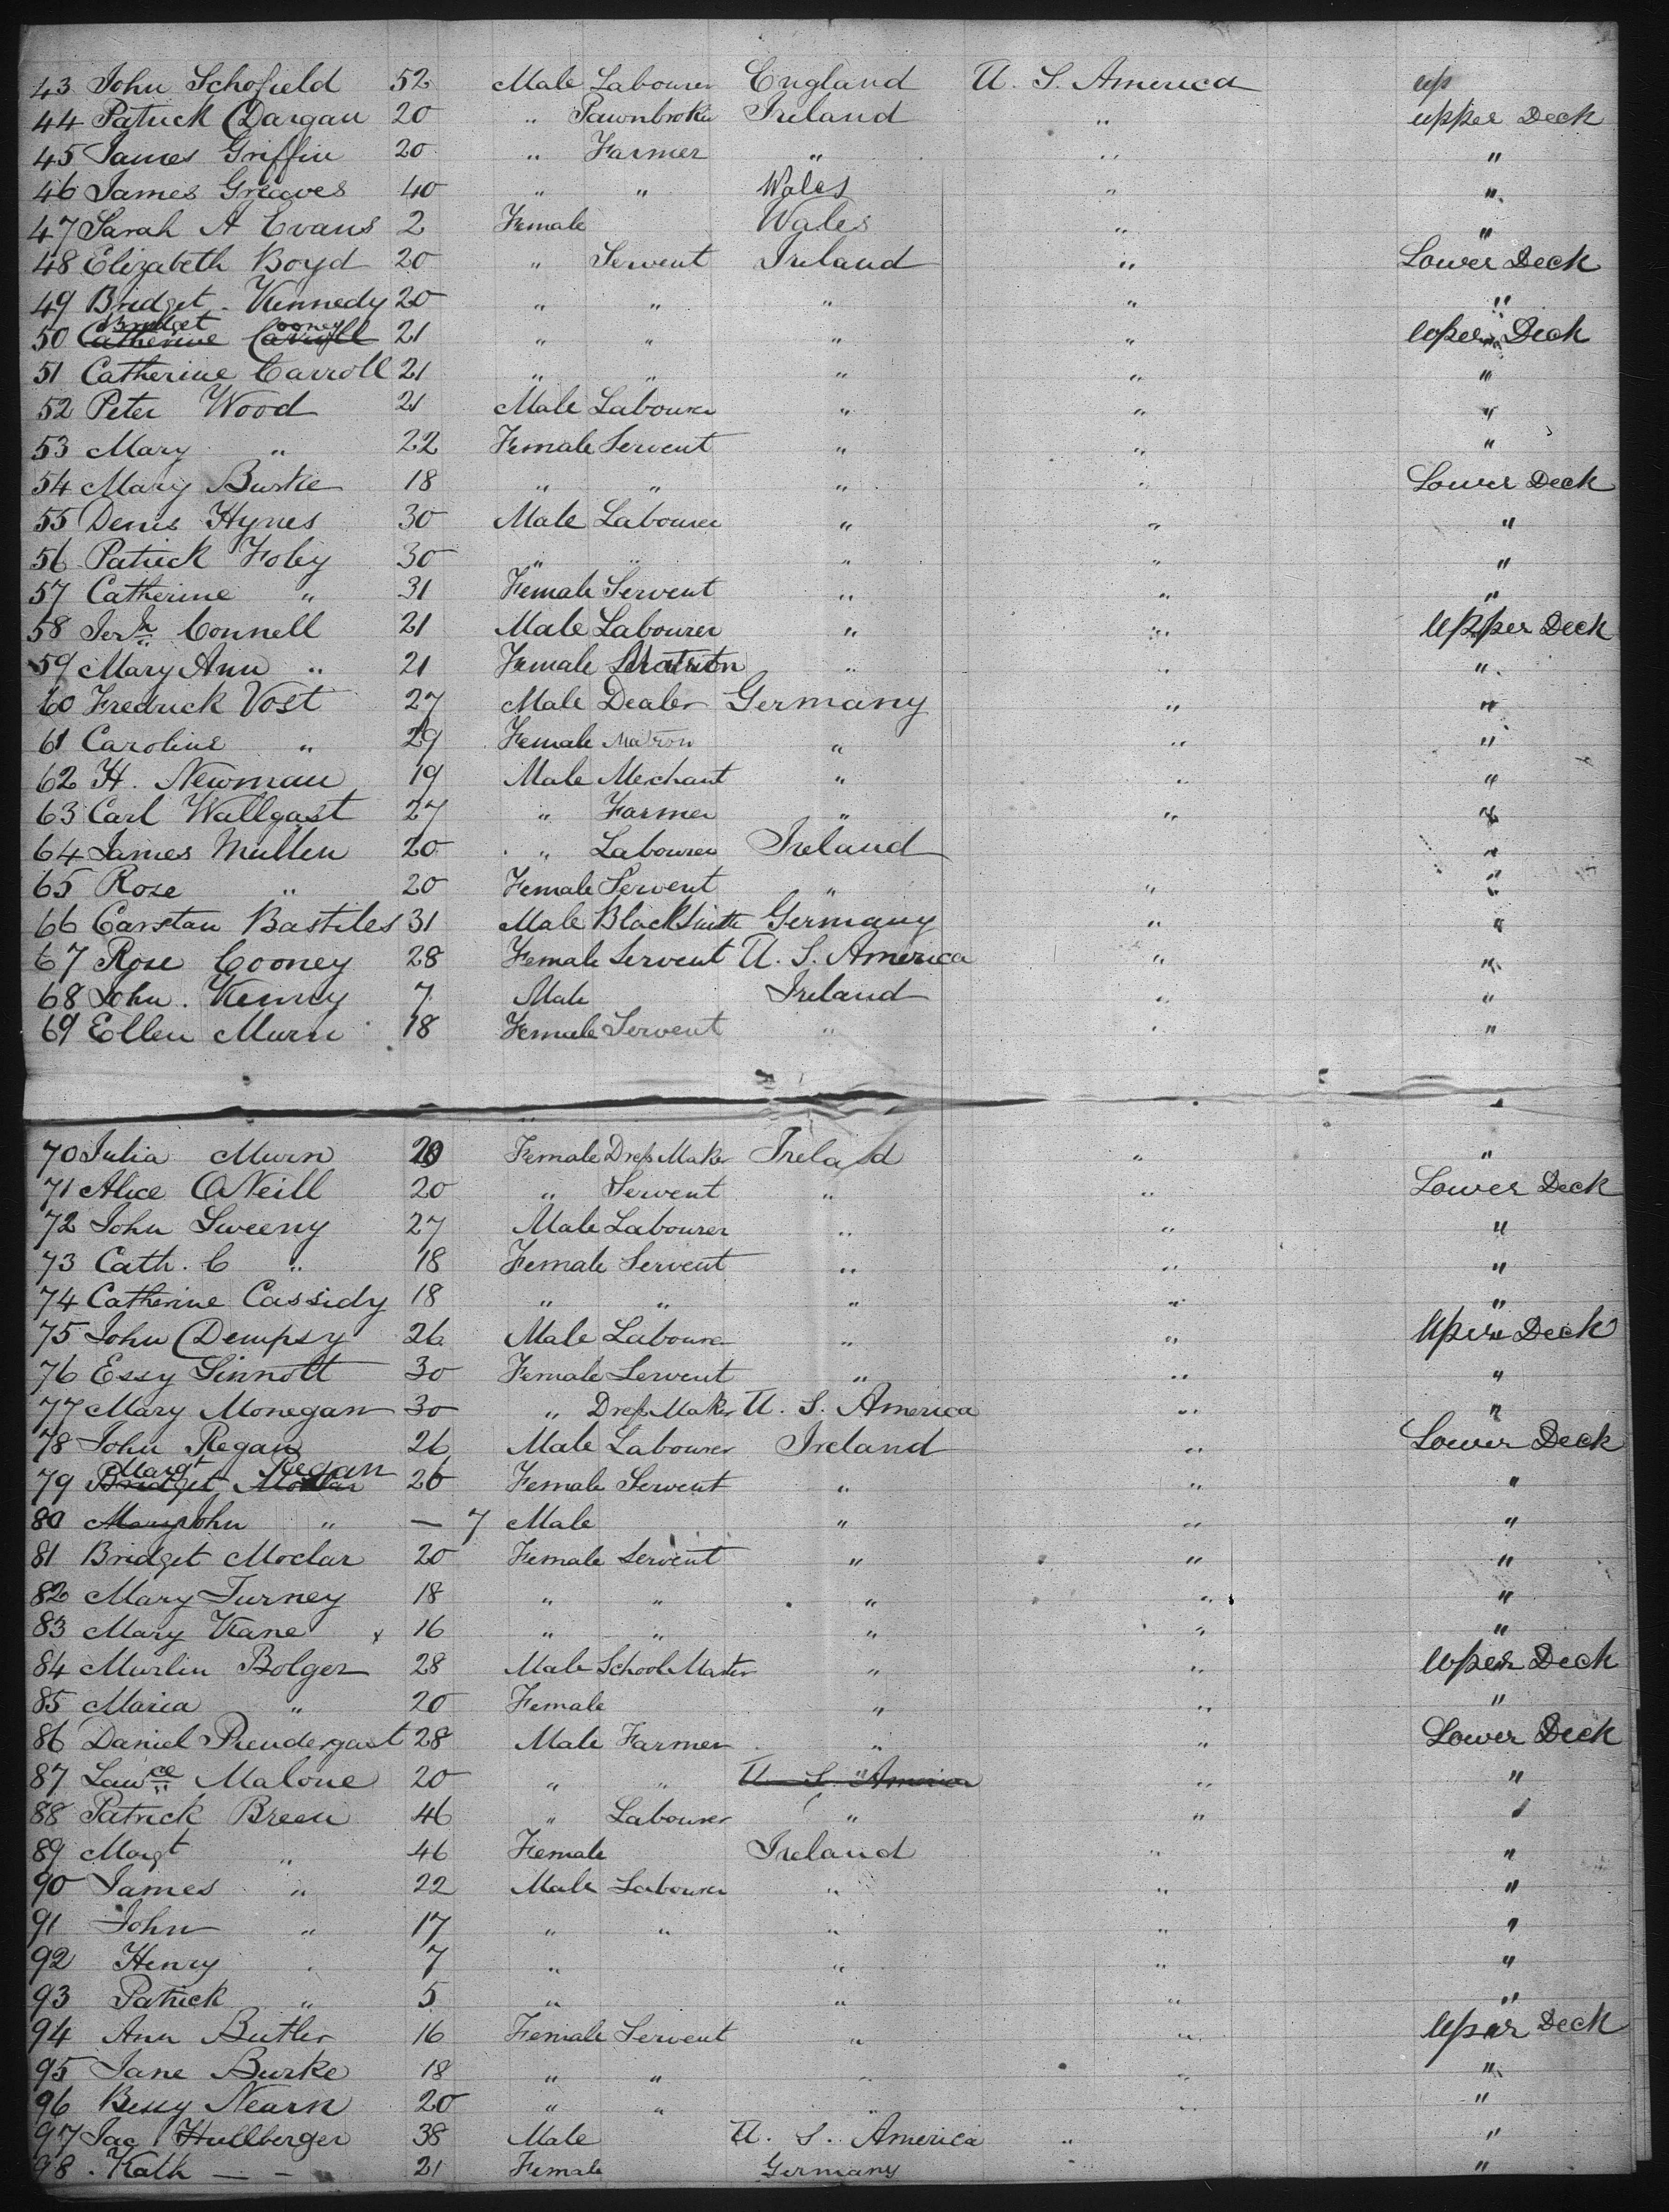 43 John Schofield 52 Male Labourer England U. S. America up
44 Patrick Dargan 20 " Pawnbroker Ireland " upper Deck
45 James Griffin 20 " Farmer " " "
46 James Greaves 40 " " Wales " "
47 Sarah A Evans 2 Female Wales " "
48 Elizabeth Boyd 20 " Servent Ireland " Lower Deck
49 Bridget Kennedy 20 " " " " "
Bridget Cooney
50 Catherine Carroll 21 " " " " Uper Deck
51 Catherine Carroll 21 " " " " "
52 Peter Wood 21 Male Labourer " " "
53 Mary " 22 Female Servent " " "
54 Mary Burke 18 " " " " Lower Deck
55 Denis Hynes 30 Male Labourer " " "
56 Patrick Foley 30 " " " " "
57 Catherine " 31 Female Servent " " "
58 Jerh Connell 21 Male Labourer " " Upper Deck
59 Mary Ann " 21 Female Matron " " "
60 Fredrick Vost 27 Male Dealer Germany " "
61 Caroline " 29 Female Matron " " "
62 H. Newman 19 Male Merchant " " "
63 Carl Wallgast 27 " Farmer " " "
64 James Mullen 20 " Labourer Ireland "
65 Rose " 20 Female Servent " " "
66 Carstan Bastiles 31 Male BlackSmith Germany " "
67 Rose Cooney 28 Female Servent U. S. America " "
68 John Kenny 7 Male Ireland " "
69 Ellen Murn 18 Female Servent " " "
70 Julia Murn 20 Female Dress Maker Ireland " "
71 Alice ONeill 20 " Servent " " Lower Deck
72 John Sweeny 27 Male Labourer " " "
73 Cath. C " 18 Female Servent " " "
74 Catherine Cassidy 18 " " " " "
75 John Dempsy 26 Male Labourer " " Uper Deck
76 Essy Sinnott 30 Female Servent " " "
77 Mary Monegan 30 " Dress Maker U. S. America " "
78 John Regan 26 Male Labourer Ireland " Lower Deck
Margt Regan
79 Bridget Moclar 26 Female Servent " " "
80 Mary John " — 7 Male " " "
81 Bridget Moclar 20 Female Servent " " "
82 Mary Turney 18 " " " " "
83 Mary Kane x 16 " " " " "
84 Murlin Bolger 28 Male School Master " " Uper Deck
85 Maria " 20 Female " " "
86 Daniel Prendergast 28 Male Farmer " " Lower Deck
87 Lawce Malone 20 " " U. S. America " "
88 Patrick Breen 46 " Labourer " " "
89 Margt " 46 Female Ireland " "
90 James " 22 Male Labourer " " "
91 John " 17 " " " " "
92 Henry " 7 " " " "
93 Patrick " 5 " " " "
94 Ann Butler 16 Female Servent " " Uper Deck
95 Jane Burke 18 " " " " "
96 Bessy Nearn 20 " " " " "
97 Jac Hullberger 38 Male U. S. America " "
98 Kath — - 21 Female Germany "